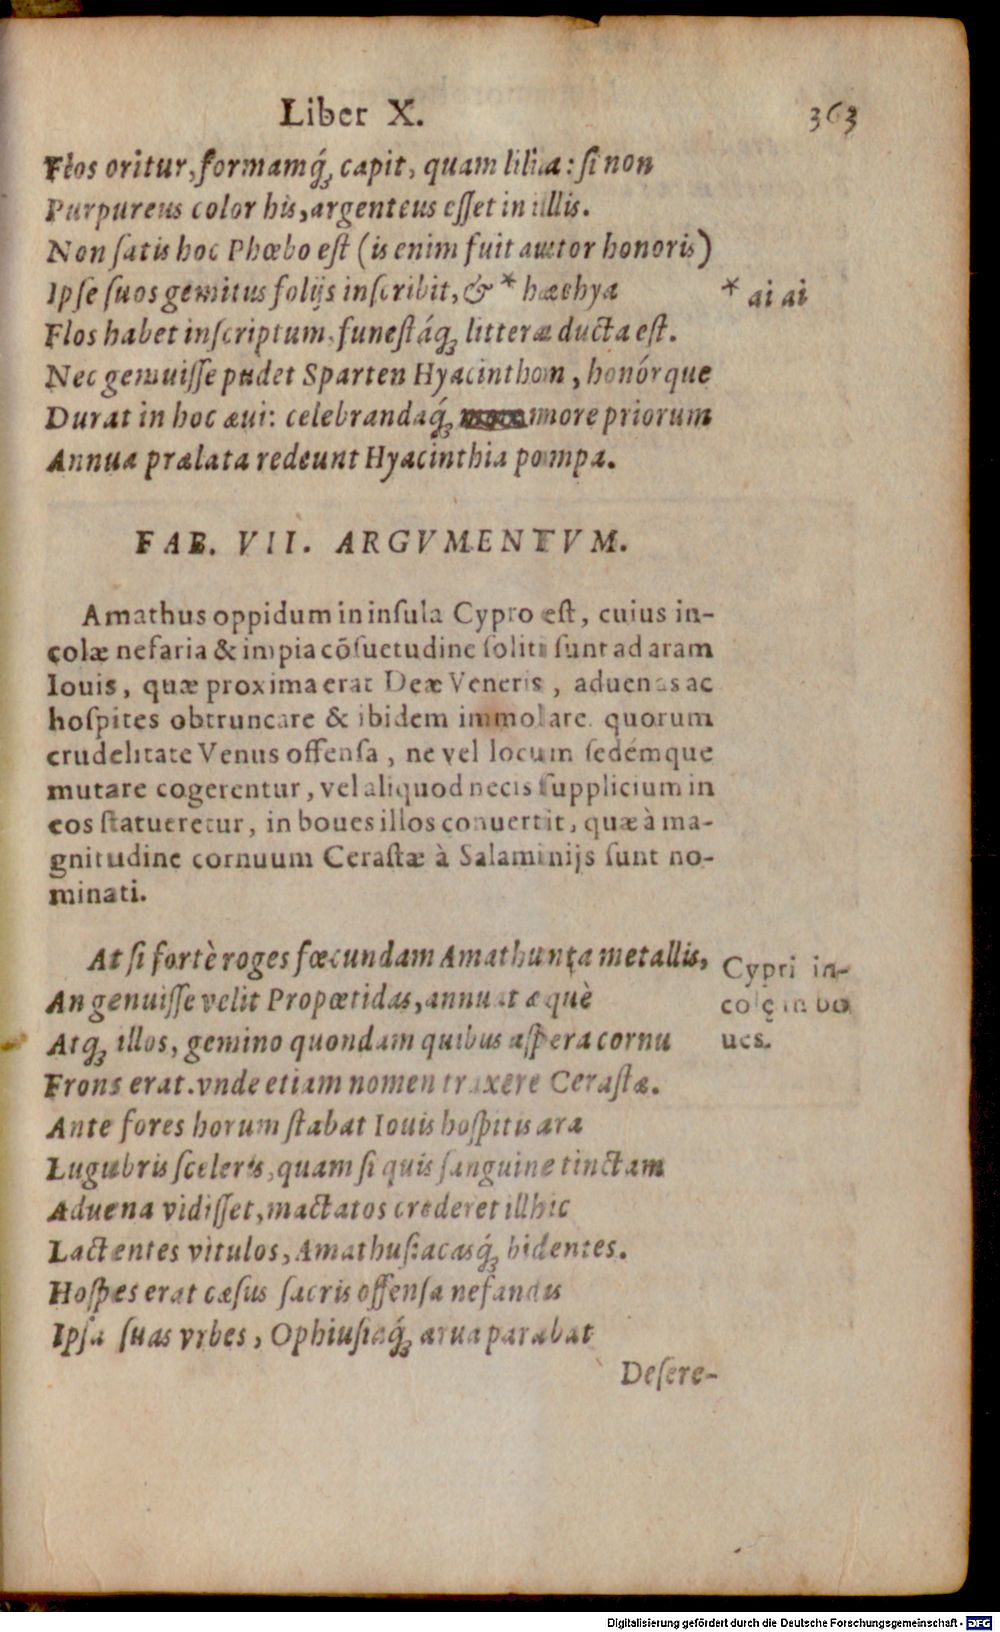 Liber X. 363
Flos oritur, formamq́ꝫ capit, quam lilia: ſi non
Purpureus color his, argenteus eſſet in illis.
Non ſatis hoc Phœbo eſt (is enim fuit auctor honoris)
Ipſe ſuos gemitus folijs inſcribit, & * hæc hya
* ai ai
Flos habet inſcriptum, funeſtáqꝫ litteræ ducta eſt.
Nec genuiſſe pudet Sparten Hyacinthon, honórque
Durat in hoc æui: celebrandaq́ꝫ more priorum
Annua prælata redeunt Hyacinthia pompa.
FAB. VII. ARGVMENTVM.
Amathus oppidum in inſula Cypro eſt, cuius in-
colæ nefaria & impia cõſuetudine ſoliti ſunt ad aram
Iouis, quæ proxima erat Deæ Veneris, aduenas ac
hoſpites obtruncare & ibidem immolare. quorum
crudelitate Venus offenſa, ne vel locum ſedémque
mutare cogerentur, vel aliquod necis ſupplicium in
eos ſtatueretur, in boues illos conuertit, quæ à ma-
gnitudine cornuum Ceraſtæ à Salaminijs ſunt no-
minati.
At ſi fortè roges fœcundam Amathunta metallis,
An genuiſſe velit Propœtidas, annuat æquè
Atqꝫ illos, gemino quondam quibus aſpera cornu
Frons erat. vnde etiam nomen traxere Ceraſtæ.
Cypri in-
colę in bo
ues.
Ante fores horum ſtabat Iouis hoſpitis ara
Lugubris ſceleris, quam ſi quis ſanguine tinctam
Aduena vidiſſet, mactatos crederet illhic
Lactentes vitulos, Amathuſiacasq́ꝫ bidentes.
Hoſpes erat cæſus ſacris offenſa nefandis
Ipſa ſuas vrbes, Ophiuſiaq́ꝫ arua parabat
Deſere-
Digitalisierung gefördert durch die Deutsche Forschungsgemeinschaft - DFG